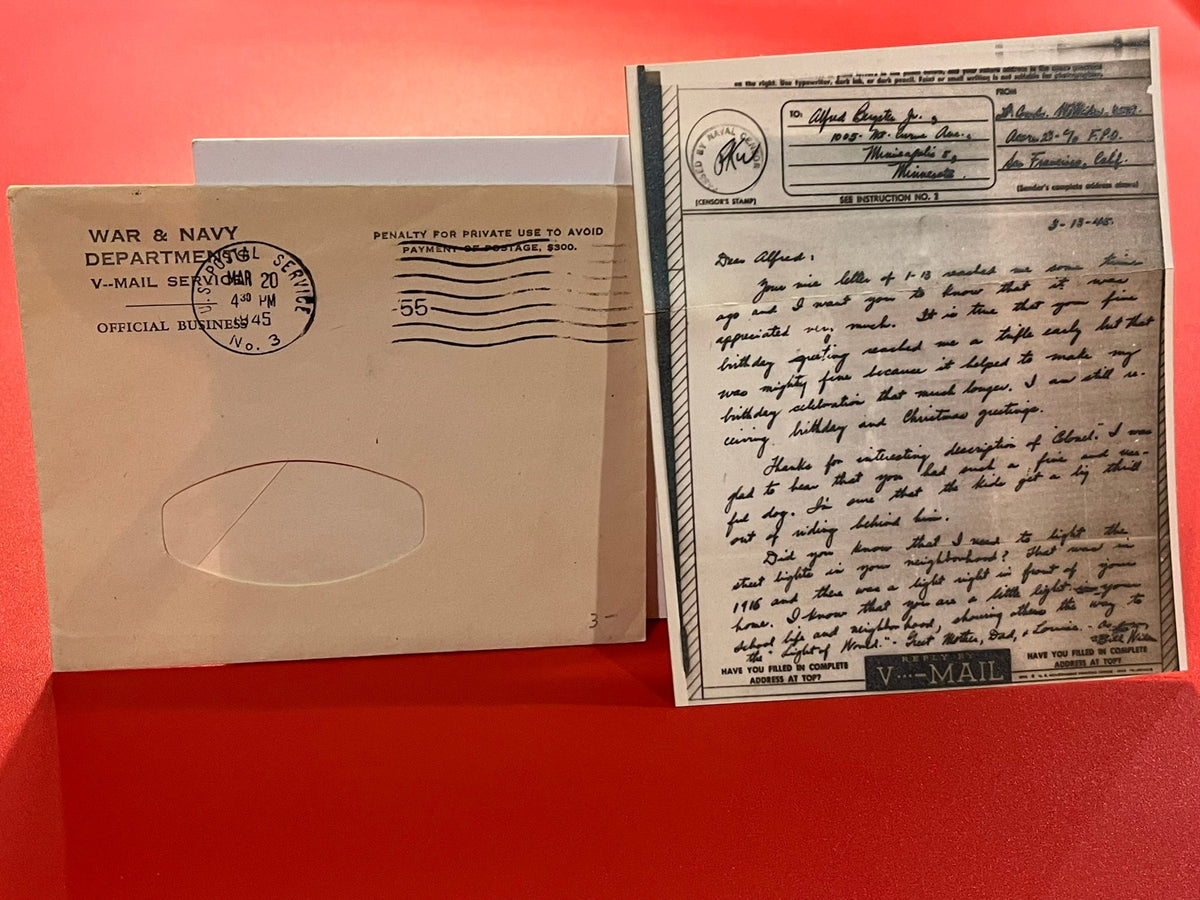 WAR & NAVY
DEPARTMENTS
V--MAIL SERVICE
OFFICIAL BUSINESS
U.S. POSTAL SERVICE
MAR 20
4 30 PM
1945
No. 3
PENALTY FOR PRIVATE USE TO AVOID
PAYMENT OF POSTAGE, $300.
-55-
3-
on the right. Use typewriter, dark ink, or dark pencil. Faint or small writing is not suitable for photographing.
PASSED BY NAVAL CENSOR
(CENSOR'S STAMP)
TO:
Alfred Jr.,
1005- Ave.,
Minneapolis 5,
Minnesota.
SEE INSTRUCTION NO. 2
FROM
Lt. Comdr.
Acorn 23- c/o F.P.O.
San Francisco, Calif.
(Sender's complete address above)
3-13-45.
Dear Alfred:
Your nice letter of 1-13 reached me some time
ago and I want you to know that it was
appreciated very much. It is true that your fine
birthday greeting reached me a trifle early but that
was mighty fine because it helped to make my
birthday celebration that much longer. I am still re-
ceiving birthday and Christmas greetings.
Thanks for interesting description of "Colonel." I was
glad to hear that you had such a fine and use-
ful dog. I'm sure that the kids get a big thrill
out of riding behind him.
Did you know that I used to light the
street lights in your neighborhood? That was in
1916 and there was a light right in front of your
home. I know that you are a little light in your
school life and neighborhood, showing others the way to
the "Light of World." - Greet Mother, Dad, & Louise. -
Bill
HAVE YOU FILLED IN COMPLETE
ADDRESS AT TOP?
REPLY BY
V···—MAIL
HAVE YOU FILLED IN COMPLETE
ADDRESS AT TOP?